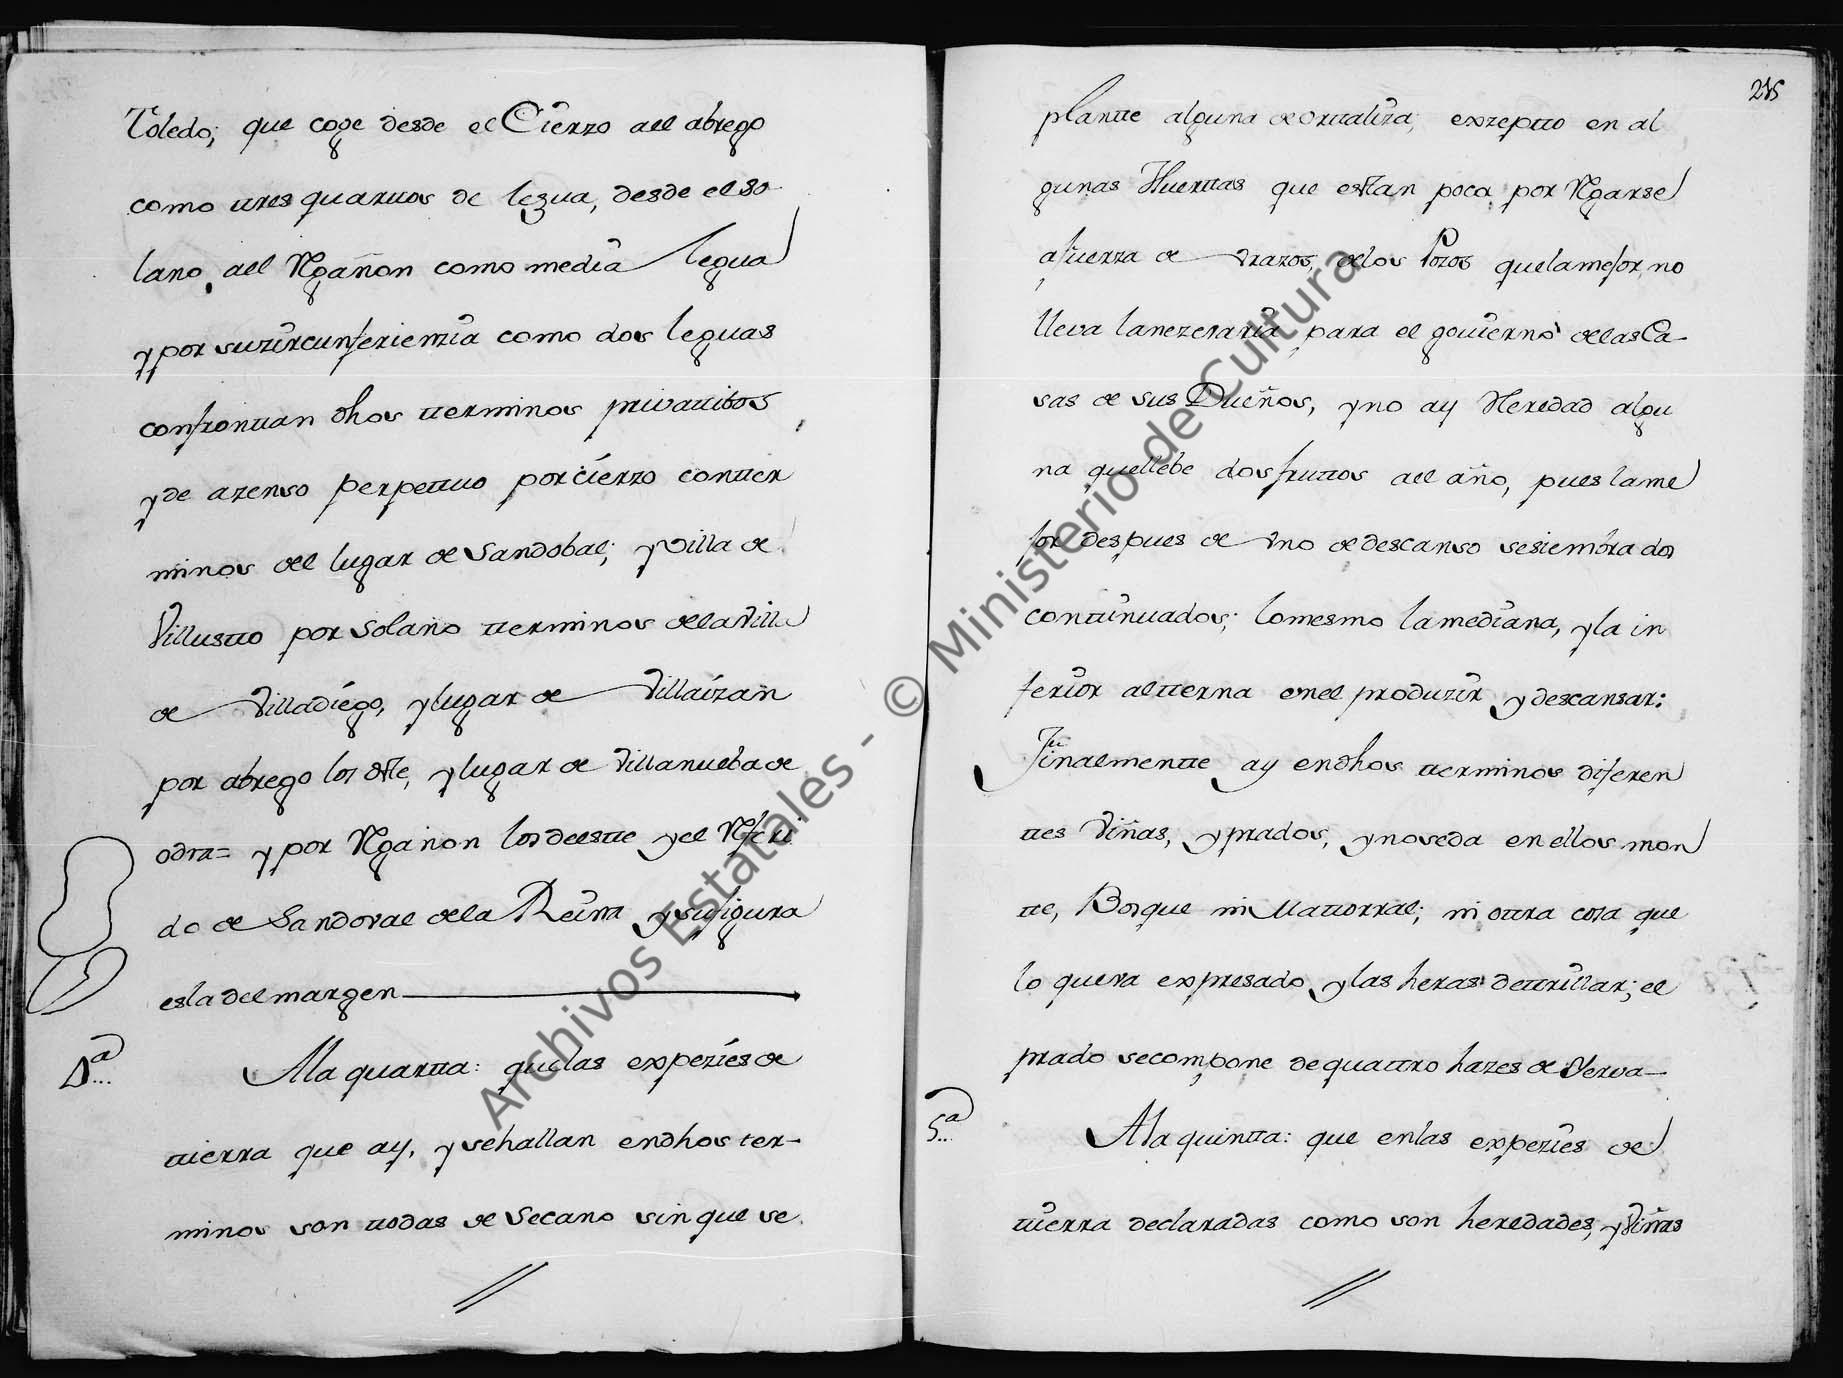 Toledo; que coge desde el Cierzo ael abrego
como tres quartos de legua, desde el so
lano, ael Rgañon como media legua
y por suzircunferienzia como dos leguas
confrontan dhos tterminos privatibos
y de azenso perpettuo por cierzo con tter
minos del lugar de Sandobal; y Villa de
Villustto por Solano tterminos dela Villa
de Villadiego, y lugar de Villaizan
por abrego los dtte, y lugar de Villanueba de
odra= y por Rgañon los deestte y el Rferi
do de Sandoval dela Reina y su figura
es la del margen
4ª... Ala quartta: que las expezies de
ttierra que ay, y se hallan en dhos ter-
minos son ttodas de Secano sin que se
215
plantte alguna de orttaliza; exzeptto en al
gunas Huerttas que esttan poca por Rgarse
a fuerza de vrazos, de los Pozos que la mejor, no
lleva la nezesaria para el govierno de las Ca-
sas de sus Dueños, y no ay Heredad algu
na que llebe dos fruttos ael año, pues la me
jor despues de vno de descanso se siembra dos
conttinuados; lo mesmo la mediana, y la in
ferior altterna en el produzir y descansar:
Finalmentte ay en dhos tterminos diferen
ttes Viñas, y prados, y no se da en ellos mon
tte, Bosque ni Mattorral; ni ottra cosa que
lo que va expresado y las heras de ttrillar; el
prado se compone de quattro hazes de Yerva-
5ª... Ala quintta: que en las expezies de
ttierra declaradas como son heredades, y Viñas
Archivos Estatales - © Ministerio de Cultura